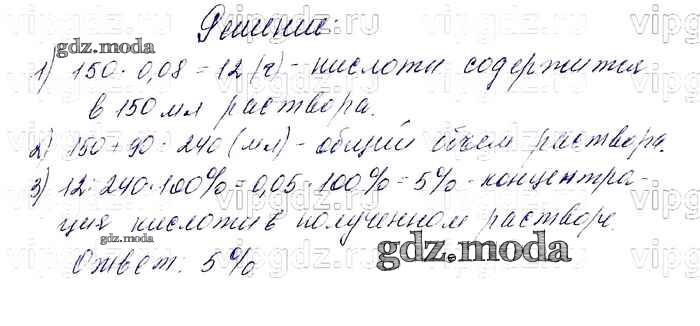 Решение:
1) 150 · 0,08 = 12 (г) - кислоты содержится
в 150 мл раствора.
2) 150 + 90 = 240 (мл) - общий объем раствора.
3) 12 : 240 · 100% = 0,05 · 100% = 5% - концентра-
ция кислоты в полученном растворе.
Ответ: 5%
gdz.moda
gdz.moda
gdz.moda
gdz.moda
vipgdz.ru